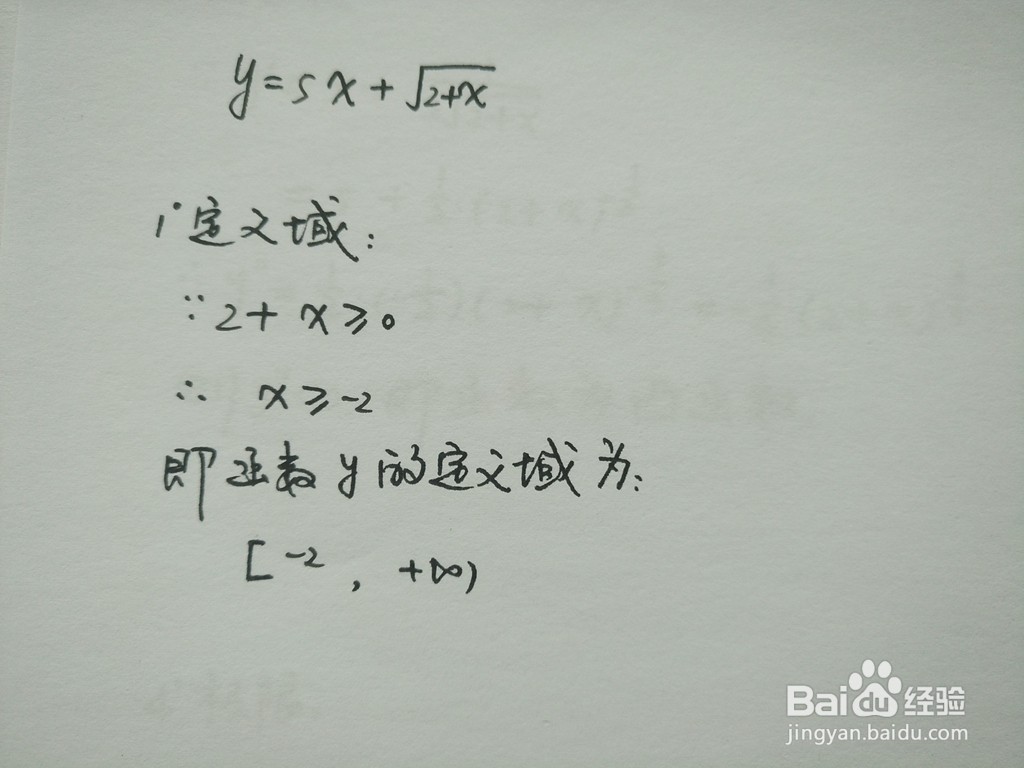 y=5x+√2+x
1°定义域:
∵2+x≥0
∴ x≥-2
即函数y的定义域为:
[-2, +∞)
Bai du 经验
jingyan.baidu.com